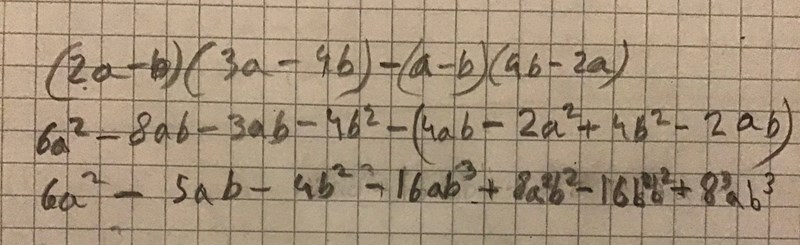 (2a-b)(3a-4b)-(a-b)(4b-2a)
6a²-8ab-3ab-4b²-(4ab-2a²+4b²-2ab)
6a²-5ab-4b²-16ab³+8a²b²-16b²b²+8²ab³